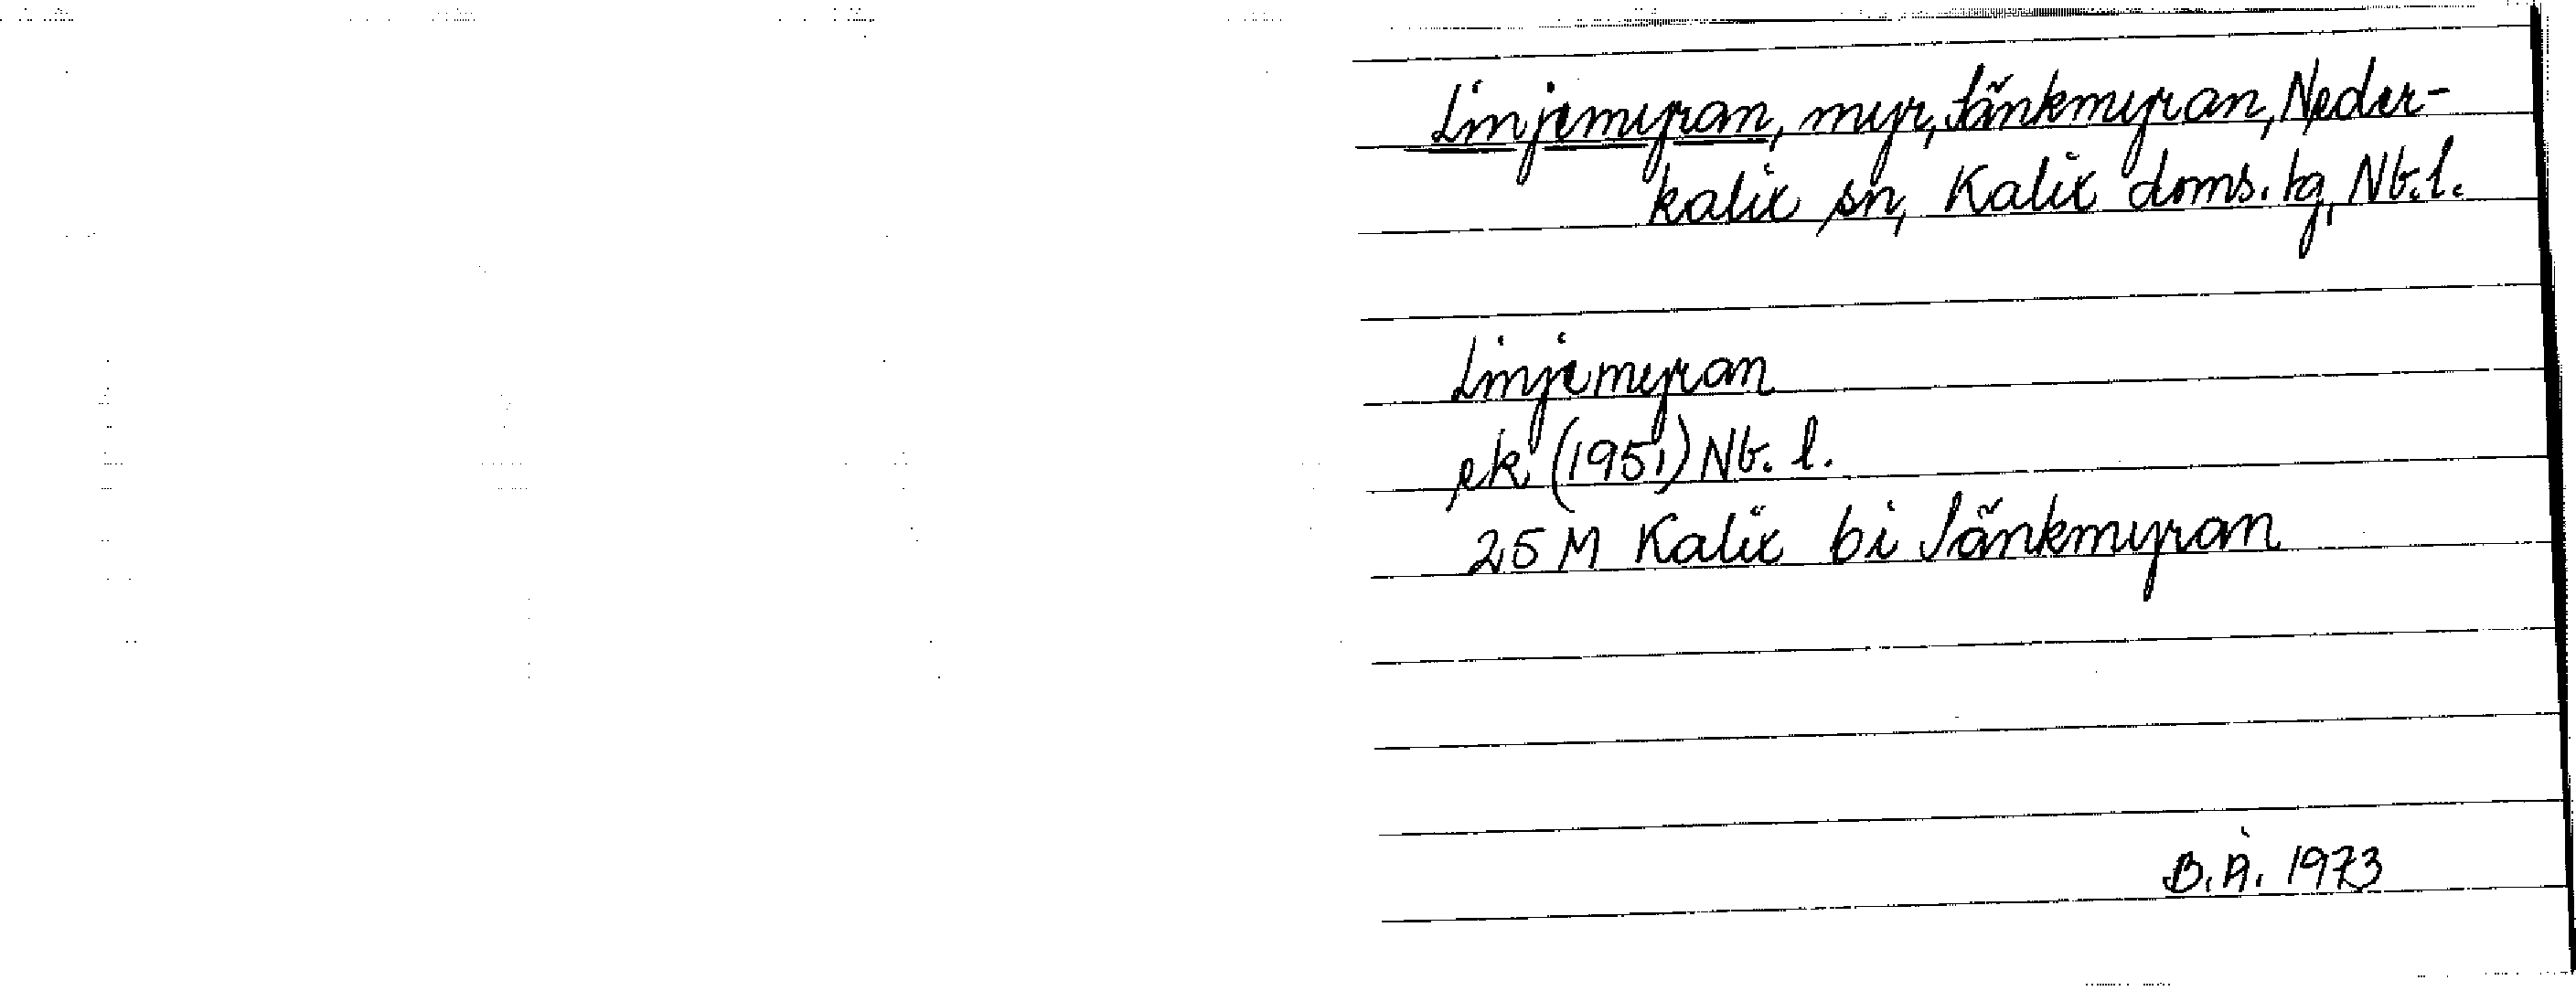 Linjemyran, myr, Sänkmyran, Neder-
kalix sn, Kalix doms. tg, Nb.l.
Linjemyran
ek (1951) Nb. l.
25 M Kalix bi Sänkmyran
B.Å. 1973